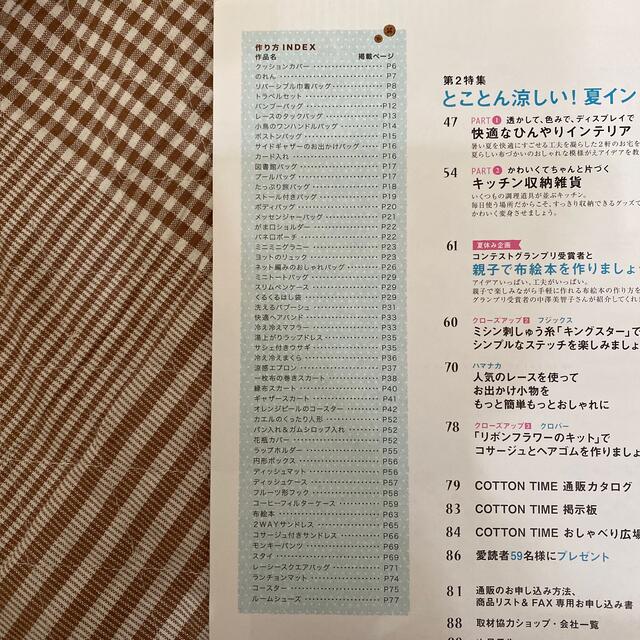 作り方 INDEX
作品名 掲載ページ
クッションカバー P6
のれん P7
リバーシブル巾着バッグ P8
トラベルセット P9
バンブーバッグ P12
レースのタックバッグ P13
小鳥のワンハンドルバッグ P14
ボストンバッグ P15
サイドギャザーのお出かけバッグ P16
カード入れ P16
図書館バッグ P17
プールバッグ P17
たっぷり旅バッグ P18
ストール付きバッグ P19
ボディバッグ P20
メッセンジャーバッグ P21
がま口ショルダー P22
バネ口ポーチ P22
ミニミニグラニー P23
ヨットのリュック P23
ネット編みのおしゃれバッグ P26
ミニトートバッグ P29
スリムペンケース P29
くるくるはし袋 P29
洗えるバブーシュ P31
快適ヘアバンド P33
冷え冷えマフラー P33
湯上がりラップドレス P35
サシェ付きウサギ P35
冷え冷えまくら P36
涼感エプロン P37
一枚布の巻きスカート P38
緑布スカート P40
ギャザースカート P41
オレンジピールのコースター P42
カエルのくったり人形 P52
パン入れ&ガムシロップ入れ P52
花瓶カバー P52
ラップホルダー P55
円形ボックス P56
ディッシュマット P56
ディッシュケース P57
フルーツ形フック P58
コーヒーフィルターケース P59
布絵本 P63
2WAYサンドレス P65
コサージュ付きサンドレス P66
モンキーパンツ P69
スタイ P69
レーシースクエアバッグ P71
ランチョンマット P74
コースター P75
ルームシューズ P77
第2特集
とことん涼しい! 夏イン
47 PART 1 透かして、色みで、ディスプレイで
快適なひんやりインテリア
暑い夏を快適にすごせる工夫を凝らした2軒のお宅を
夏らしい布づかいのおしゃれな模様がえアイデアを教
54 PART 2 かわいくてちゃんと片づく
キッチン収納雑貨
いくつもの調理道具が並ぶキッチン。
毎日使う場所だからこそ、すっきり収納できるグッズで
かわいく変身させましょう。
61 夏休み企画
コンテストグランプリ受賞者と
親子で布絵本を作りましょ
アイデアいっぱい、工夫がいっぱい。
親子で楽しみながら手軽に作れる布絵本の作り方を
グランプリ受賞者の中澤美智子さんが紹介してくれ
60 クローズアップ2 フジックス
ミシン刺しゅう糸「キングスター」で
シンプルなステッチを楽しみましょ
70 ハマナカ
人気のレースを使って
お出かけ小物を
もっと簡単もっとおしゃれに
78 クローズアップ3 クロバー
「リボンフラワーのキット」で
コサージュとヘアゴムを作りましょ
79 COTTON TIME 通販カタログ
83 COTTON TIME 掲示板
84 COTTON TIME おしゃべり広場
86 愛読者59名様にプレゼント
81 通販のお申し込み方法、
商品リスト&FAX専用お申し込み書
88 取材協力ショップ・会社一覧